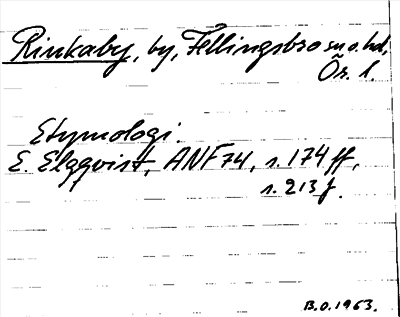 Rinkaby, by, Fellingsbro sn o. hd,
Ör. l.
Etymologi.
E. Elqqvist, ANF 74, s. 174 ff,
s. 213 f.
B.O. 1963.